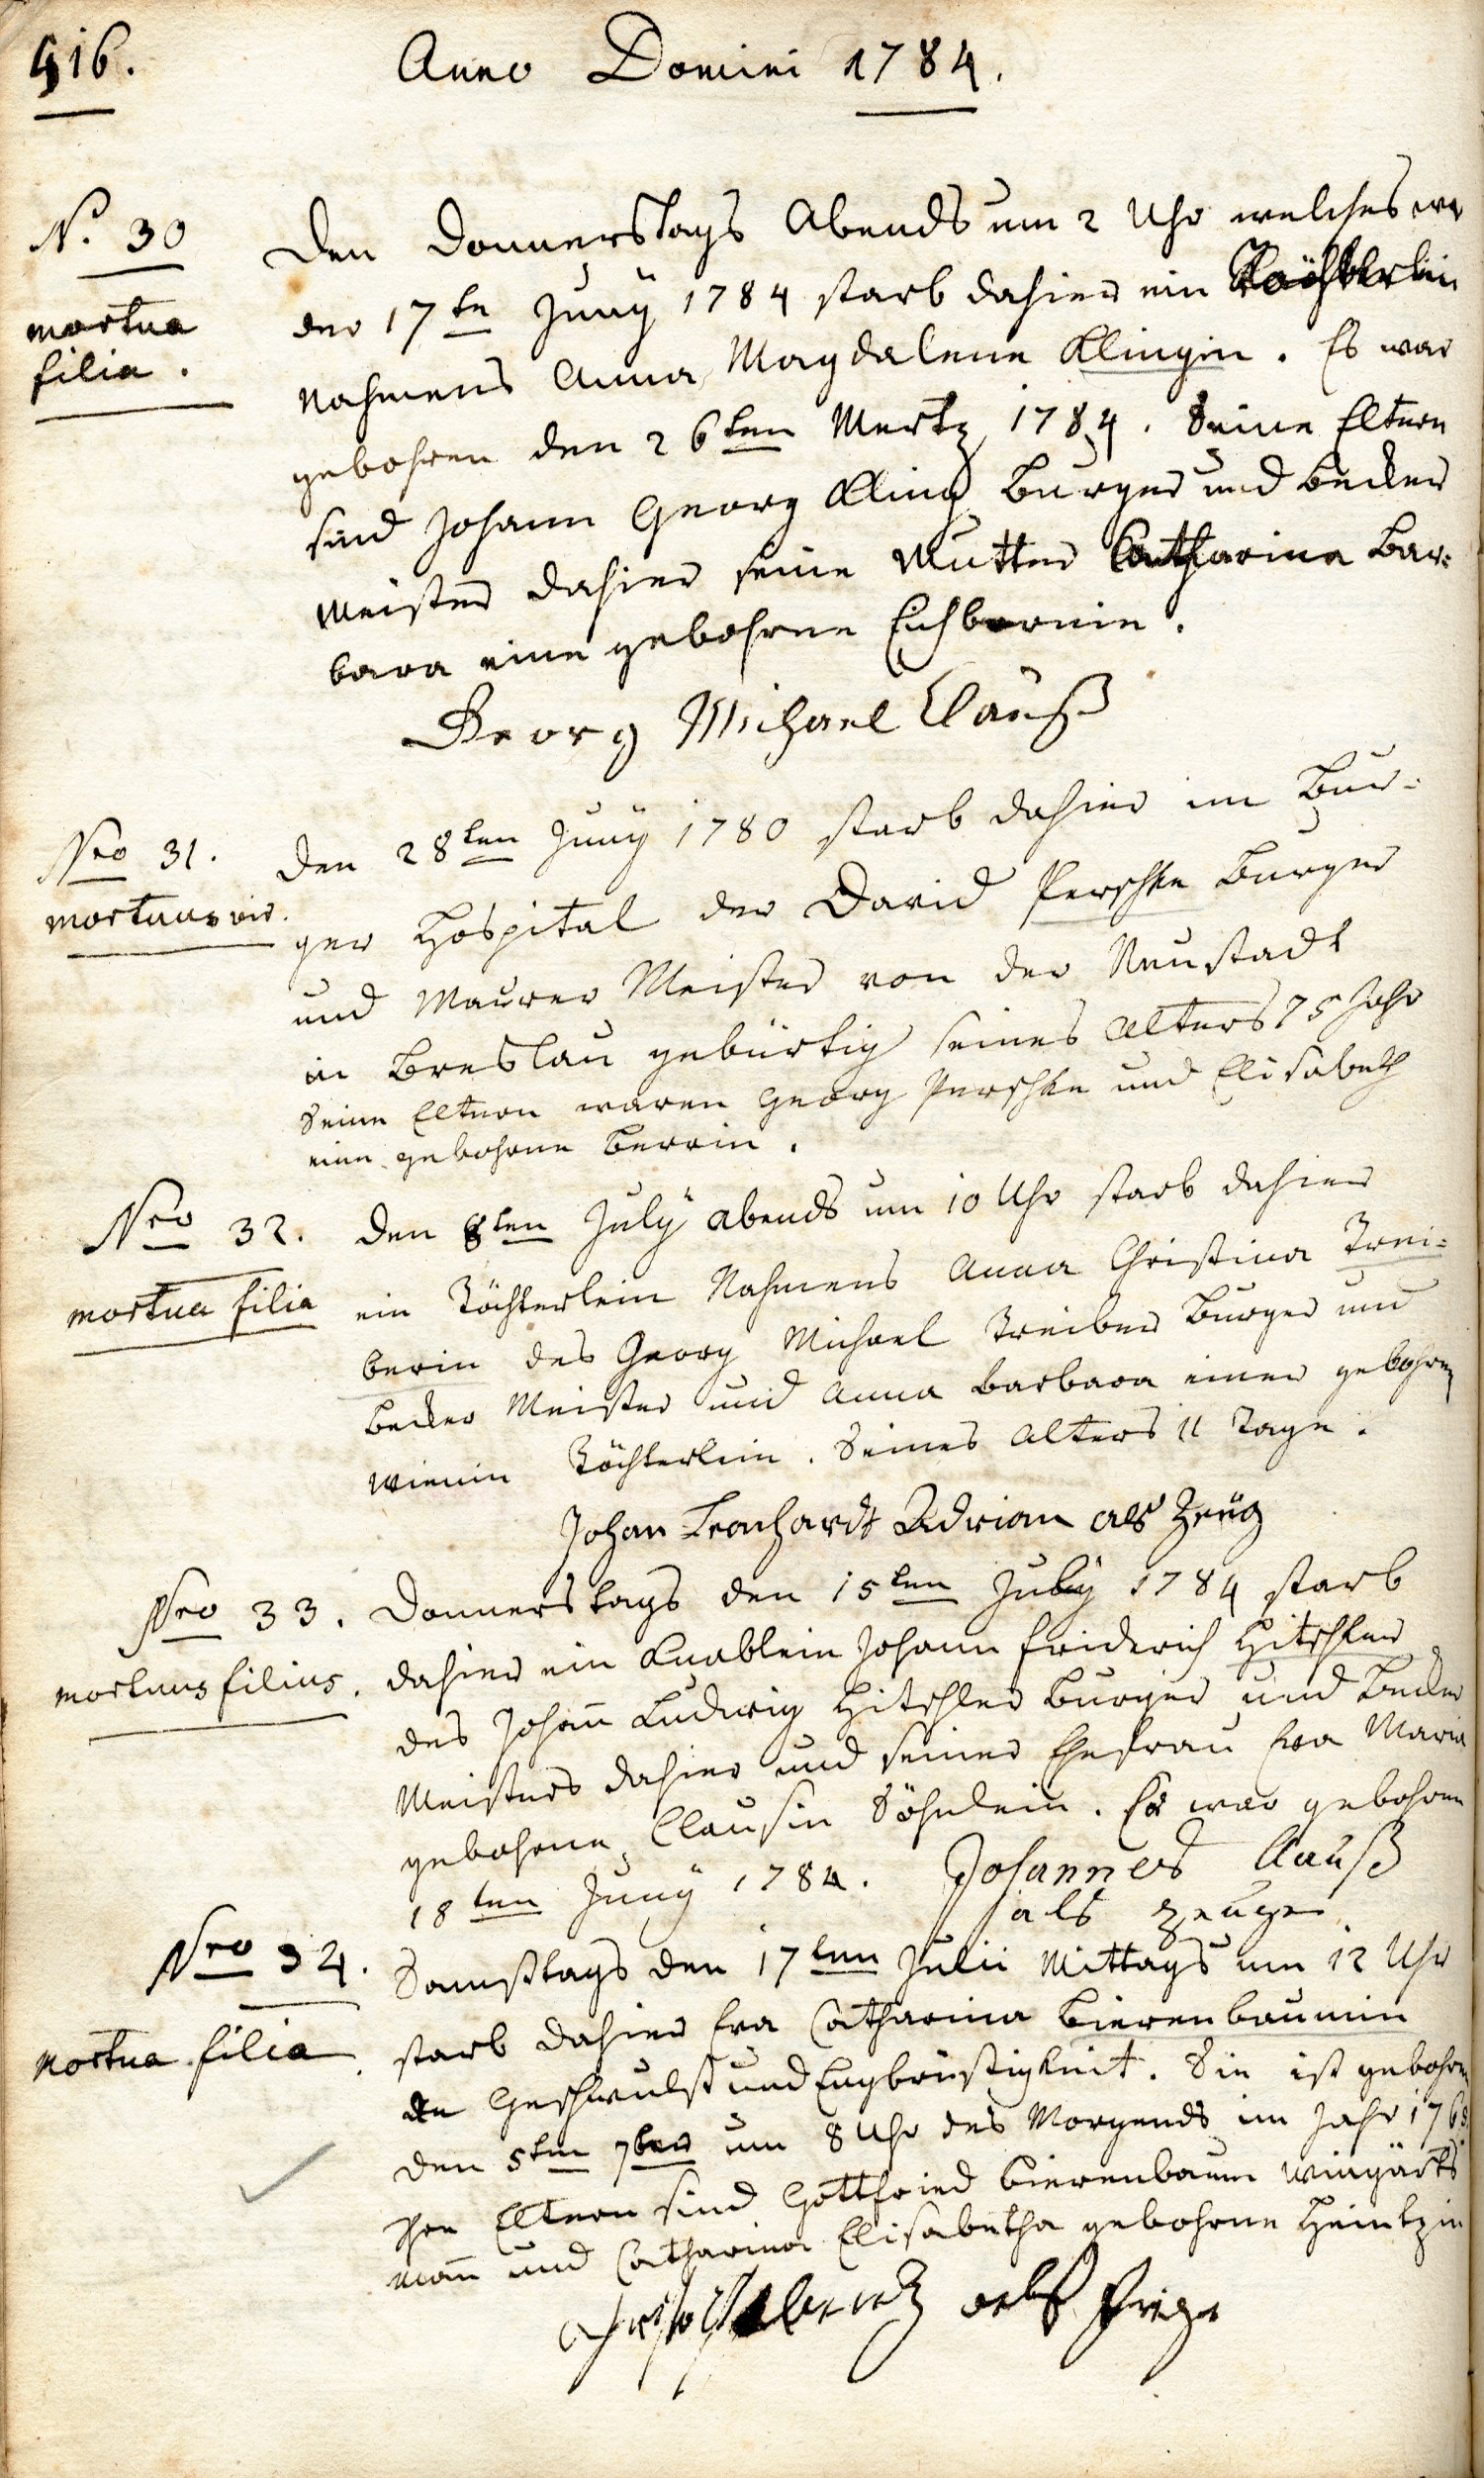 416.
Anno Domini 1784.
N. 30
mortua
filia.
Den Donnerstags Abends um 2 Uhr welches war
der 17te Juny 1784 starb dahier ein Töchterlein
Nahmens Anna Magdalena Klingin. Es war
gebohren den 26ten Mertz 1784. Seine Eltern
sind Johann Georg Kling Burger und Becker
Meister dahier seine Mutter Catharina Bar=
bara eine gebohrne Eichbornin.
Georg Michael Clauß
Nro 31.
mortuus vir.
Den 28ten Juny 1780 starb dahier im Bur=
ger Hospital der David Perschke Burger
und Maurer Meister von der Neustadt
in Breslau gebürtig seines Alters 75 Jahr
Seine Eltern waren Georg Perschke und Elisabeth
eine gebohrne Berrin.
Nro 32.
mortua filia
Den 8ten July abends um 10 Uhr starb dahier
ein Töchterlein Nahmens Anna Christina Trei=
berin des Georg Michael Treiber Burger und
Becker Meister und Anna Barbara einer gebohrne
Wienin Töchterlein. Seines Alters 11 Tage.
Johan Leonhardt Adrian als Zeüg
Nro 33.
mortuus filius.
Donnerstags den 15ten July 1784 starb
dahier ein Knablein Johann Friderich Hitschler
des Johann Ludwig Hitschler Burger und Becker
Meisters dahier und seiner Ehefrau Eva Maria
gebohrne Clausin Söhnlein. Er war gebohren
18ten Juny 1784. Johannes Clauß
als Zeuge
Nro 34.
Mortua filia
Samstags den 17ten Julii Mittags um 12 Uhr
starb dahier Eva Catharina Bierenbaumin
an Geschwulst und Engbrüstigkeit. Sie ist gebohren
den 5ten 7ber um 8 Uhr des Morgends im Jahr
Ihre Eltern sind Gottfried Bierenbaum Wingärts
mann und Catharina Elisabetha gebohrne Heintzin
als